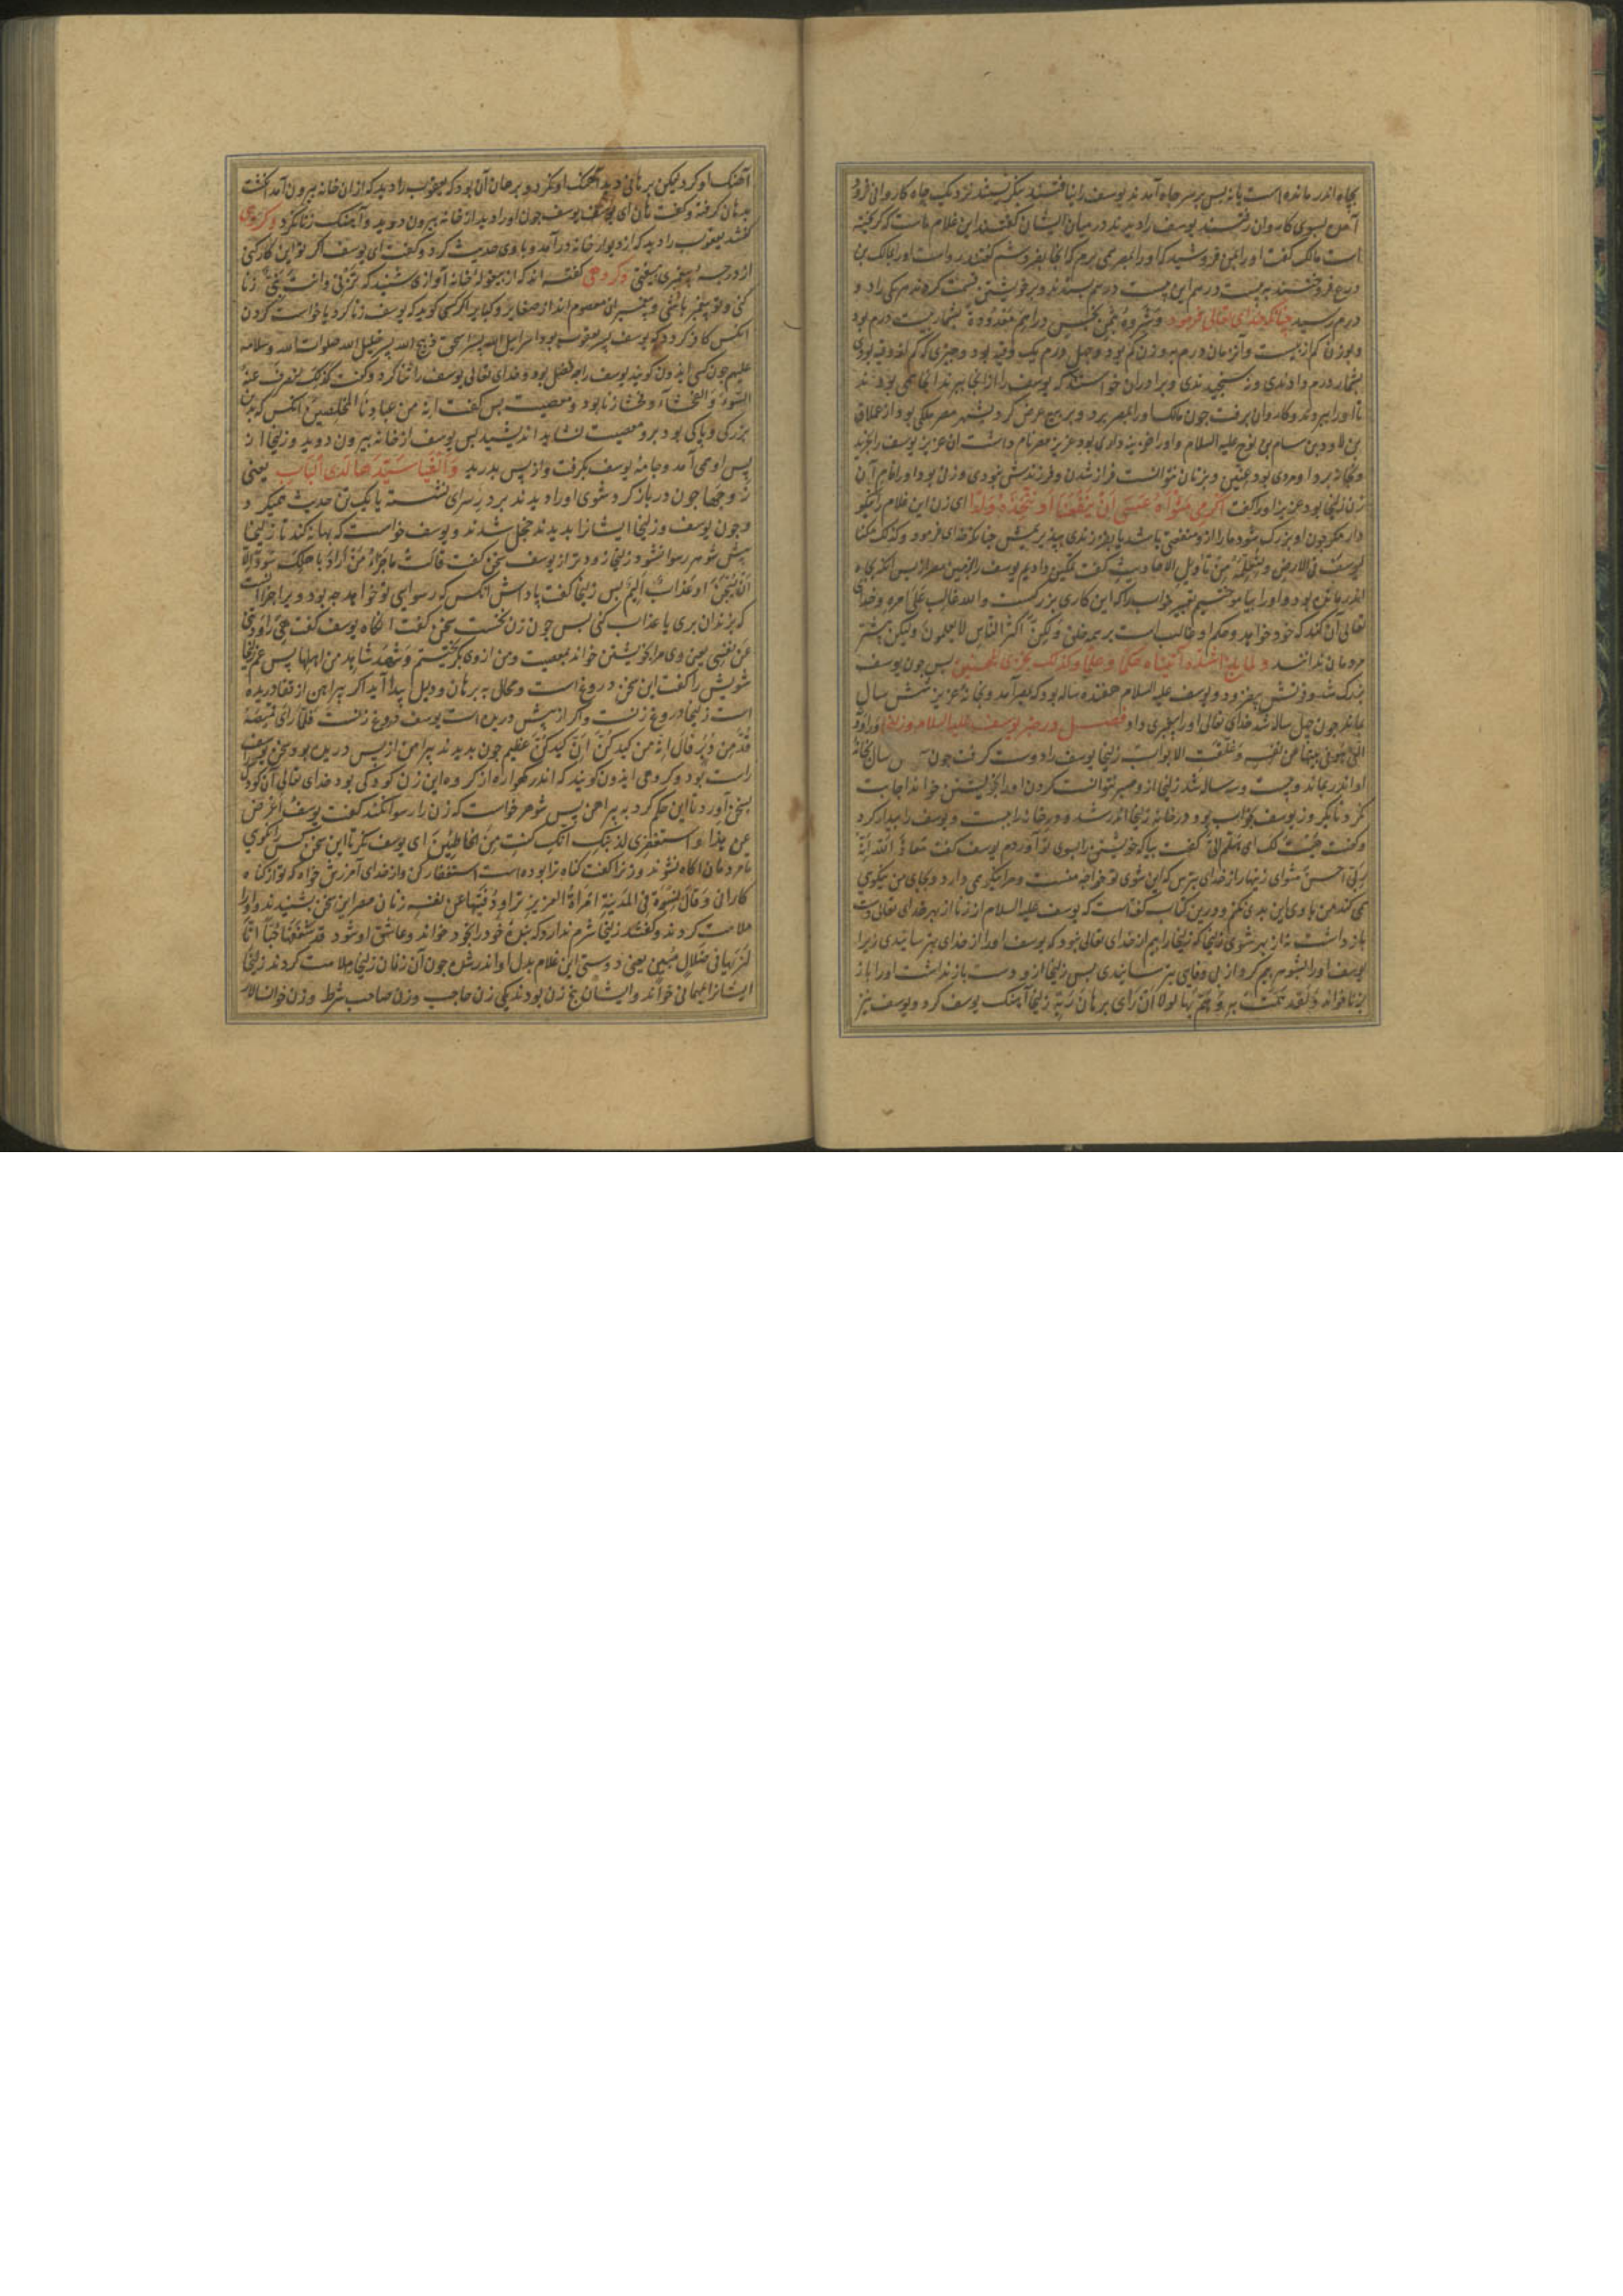 بجاه اندر مانده است یا نه پس بر سر جاه آمدند یوسف را نیافتند بنکریستند نزدیک جاه کاروانی فرود
آمده بسوی کاروان رفتند یوسف را دیدند در میان ایشان کفتند این غلام ماست که کریخته
است مالک کفت او را بمن فروشید که او را بمصر همی برم که انجا بفروشم کفتند رواست او را بمالک بن
درم رسید جنانکه خدای تعالی فرمود وَشَرَوْهُ بِثَمَنٍ بَخْسٍ دراهم مَعْدُودَة بشمار بیست درم بود
و بوزن کم از بیست و آنزمان درم بوزن کم بود و جهل درم یک وقیه بود و جیزی که کم از وقیه بودی
بشمار درم دادندی و نسنجیدندی و برادران خواستند که یوسف را از انجا ببرند انجا همی بودند
تا او را ببردند و کاروان برفت جون مالک او را بمصر برد و بر بیع عرض کرد بشهر مصر ملکی بود از عملاق
بن لاود بن سام بن نوح علیه السلام و او را خزینه داری بود عزیز مصر نام داشت ان عزیز یوسف را بخرید
و بخانه برد او مردی بود عنین و بزنان نتوانست فراز شدن و فرزندش نبودی و زن بود او را نام آن
زن زلیخا بود عزیز او را کفت اَکْرِمی مَثْواهُ عَسَی اَنْ یَنْفَعَنَا اَو نَتَّخِذَهُ وَلَداً ای زن این غلام را نیکو
دار مکر جون او بزرک شود ما را ازو منفعتی باشد یا بفرزندی بپذیریمش جنانکه خدای فرمود و کذلک مکنا
لیوسف فی الارض و لنعلمه من تأویل الاحادیث کفت تمکین دادیم یوسف را بزمین مصر از پس انکه بجاه
اندر مانده بود و او را بیاموختیم تعبیر خواب را که این کاری بزرکست والله غالب علی امره و خدای
تعالی آن کند که خود خواهد و حکم او غالب است بر همه خلق و لکن اکثر الناس لا یعلمون ولیکن بیشتر
مردمان ندانند و لما بلغ اشده آتیناه حکما و علما و کذلک نجزی المحسنین پس جون یوسف
بزرک شد و تنش بیفزود و یوسف علیه السلام هفده ساله بود که بمصر آمد و بخانه عزیز شش سال
بماند جون جهل ساله شد خدای تعالی او را پیغمبری داد فصل در خبر یوسف علیه السلام و زلیخا و راودته
التی هو فی بیتها عن نفسه و غلقت الابواب زلیخا یوسف را دوست کرفت جون سال بخانه
او اندر بماند و بیست و سه ساله شد زلیخا ازو صبر نتوانست کردن او را بخویشتن خواند اجابت
نکرد تا یکروز یوسف بخواب بود در خانه زلیخا اندر شد و در خانه را ببست و یوسف را بیدار کرد
و کفت هیت لک ای هلم الی کفت بیا که خویشتن را بسوی تو آوردم یوسف کفت معاذ الله انه
ربی احسن مثوای زینهار از خدای بترس که این شوی تو خواجه منست و مرا نیکو می دارد و بجای من نیکوی
می کند من با وی این بدی نکنم و درین کتاب کفتست که یوسف علیه السلام از زنا از بهر خدای تعالی دست
باز داشت نه از بهر شوی زلیخا که زلیخا را بیم از خدای تعالی نبود که یوسف او را از خدای بترسانیدی زیرا
بزنا خواند وَلَقَد هَمَّت به وَهَمَّ بها لولا اَنْ رَای برهان رَبِّه زلیخا آهنک یوسف کرد و یوسف نیز
آهنک او کرد لیکن برهانی دید آهنک او نکرد و برهان آن بود که یعقوب را دید که از ان خانه بیرون آمد انکشت
بدهان کرفته و کفت هان ای یوسف یوسف جون او را دید از خانه بیرون دوید و آهنک زنا نکرد و کروهی
کفتند یعقوب را دید که از دیوار خانه در آمد و با وی حدیث کرد و کفت ای یوسف اکر تو این کار کنی
از درجه پیغمبری بیفتی و کروهی کفته اند که از بیغوله خانه آوازی شنید که تزنی وانت نبی زنا
کنی و تو پیغمبر باشی و پیغمبران معصوم اند از صغایر و کبایر اکر کسی کوید که یوسف زنا کرد یا خواست کردن
انکس کافر کردد که یوسف پسر یعقوب بود اسرایل الله پسر اسحق ذبیح الله پسر خلیل الله صلوات الله و سلامه
علیهم جون کسی ایذون کوید یوسف را جه فضل بود و خدای تعالی یوسف را ثنا کرد و کفت کذلک لنصرف عنه
السوء والفحشاء و فحشا زنا بود و معصیت پس کفت انه من عبادنا المخلصین انکس که بدین
بزرکی و پاکی بود برو معصیت نشاید اندیشید پس یوسف از خانه بیرون دوید و زلیخا از
پس او می آمد و جامه یوسف بکرفت و از پس بدرید وَاَلْفَیَا سَیِّدَهَا لَدَی الْبَاب یعنی
زوجها جون در باز کرد شوی او را دیدند بر در سرای نشسته با یک تن حدیث همیکرد
و جون یوسف و زلیخا ایشانرا بدیدند خجل شدند و یوسف خواست که بهانه کند تا زلیخا
پیش شوهر رسوا نشود زلیخا زودتر از یوسف سخن کفت قالت ما جزاء من اراد باهلک سوء الا
ان یسجن او عذاب الیم پس زلیخا کفت پاداش انکس که رسوایی تو خواهد جه بود ویرا جزا انست
که بزندان بری یا عذاب کنی پس جون زن نخست سخن کفت انکاه یوسف کفت هی راودتنی
عن نفسی یعنی وی مرا بخویشتن خواند بمعصیت و من از وی بکریختم و شهد شاهد من اهلها پس عم زلیخا
شویش را کفت این سخن دروغ است و محال بی برهان و دلیل پیدا آید اکر پیراهن از قفا دریده
است زلیخا دروغ زنست و اکر از پیش دریده است یوسف دروغ زنست فلما رای قمیصه
قد من دبر قال انه من کیدکن ان کیدکن عظیم جون بدیدند پیراهن از پس دریده بود سخن یوسف
راست بود و کروهی ایذون کویند که اندر کهواره از کروه این زن کودکی بود خدای تعالی آن کودک
بسخن آورد تا این حکم کرد به پیراهن پس شوهر خواست که زن را رسوا نکند کفت یوسف اعرض
عن هذا و استغفری لذنبک انک کنت من الخاطئین ای یوسف نکر تا این سخن کس را نکوی
تا مردمان اکاه نشوند و زنرا کفت کناه ترا بوده است استغفار کن و از خدای آمرزش خواه که تو از کناه
کارانی و قال نسوة فی المدینة امراة العزیز تراود فتیها عن نفسه زنان مصر این سخن بشنیدند و او را
ملامت کردند و کفتند زلیخا شرم ندارد که بنده خود را بخود خواند و عاشق او شود قد شغفها حبا انا
لنریها فی ضلال مبین یعنی دوستی این غلام بدل او اندر شد جون آن زنان زلیخا را ملامت کردند زلیخا
ایشانرا مهمانی خواند و ایشان پنج زن بودند یکی زن حاجب و زن صاحب شرط و زن خوانسالار